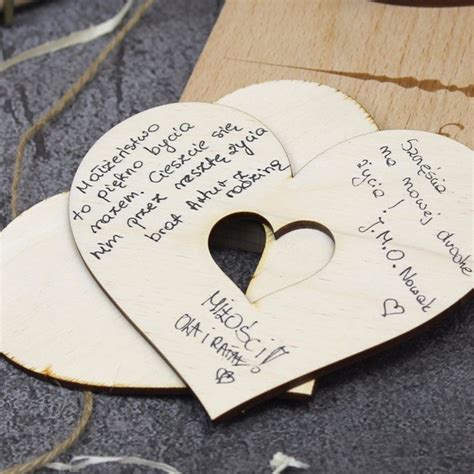 Małżeństwo
to piękno bycia
razem. Cieszcie się
nim przez resztę życia
brat Artur z
rodziną
Szczęścia
na nowej drodze
życia!
J.M.O. Nowak
MIŁOŚCI!
OLA I RAFAŁ